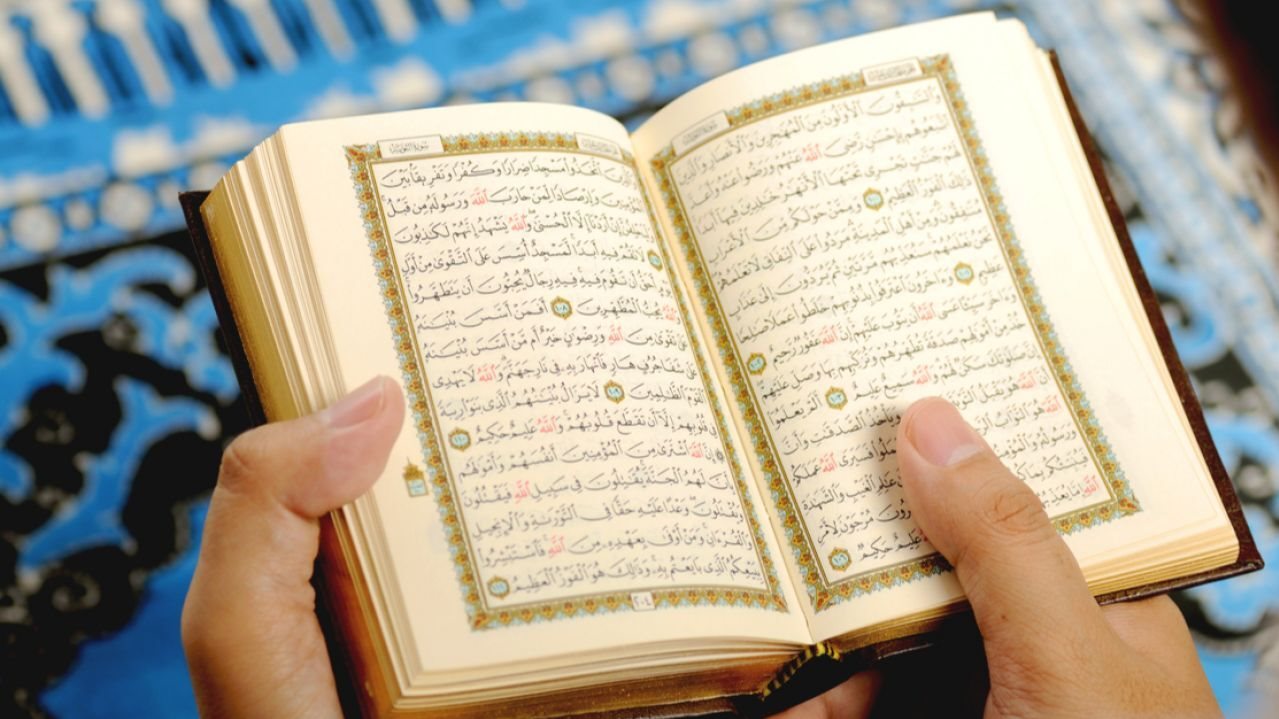 وَالسَّٰبِقُونَ الْأَوَّلُونَ مِنَ الْمُهَٰجِرِينَ وَالْأَنصَارِ وَالَّذِينَ
اتَّبَعُوهُم بِإِحْسَٰنٍ رَّضِيَ اللَّهُ عَنْهُمْ وَرَضُوا عَنْهُ وَأَعَدَّ
لَهُمْ جَنَّٰتٍ تَجْرِي تَحْتَهَا الْأَنْهَٰرُ خَٰلِدِينَ فِيهَا أَبَدًا
ذَٰلِكَ الْفَوْزُ الْعَظِيمُ ١٠٠ وَمِمَّنْ حَوْلَكُم مِّنَ الْأَعْرَابِ
مُنَٰفِقُونَ وَمِنْ أَهْلِ الْمَدِينَةِ مَرَدُوا عَلَى النِّفَاقِ لَا تَعْلَمُهُمْ
نَحْنُ نَعْلَمُهُمْ سَنُعَذِّبُهُم مَّرَّتَيْنِ ثُمَّ يُرَدُّونَ إِلَىٰ عَذَابٍ
عَظِيمٍ ١٠١ وَءَاخَرُونَ اعْتَرَفُوا بِذُنُوبِهِمْ خَلَطُوا عَمَلًا صَٰلِحًا
وَءَاخَرَ سَيِّئًا عَسَى اللَّهُ أَن يَتُوبَ عَلَيْهِمْ إِنَّ اللَّهَ غَفُورٌ رَّحِيمٌ ١٠٢
خُذْ مِنْ أَمْوَٰلِهِمْ صَدَقَةً تُطَهِّرُهُمْ وَتُزَكِّيهِم بِهَا وَصَلِّ عَلَيْهِمْ
إِنَّ صَلَوٰتَكَ سَكَنٌ لَّهُمْ وَاللَّهُ سَمِيعٌ عَلِيمٌ ١٠٣ أَلَمْ يَعْلَمُوا
أَنَّ اللَّهَ هُوَ يَقْبَلُ التَّوْبَةَ وَيَأْخُذُ الصَّدَقَٰتِ وَأَنَّ
اللَّهَ هُوَ التَّوَّابُ فَسَيَرَى اللَّهُ عَمَلَكُمْ
وَرَسُولُهُ وَالْمُؤْمِنُونَ عَٰلِمِ الْغَيْبِ وَالشَّهَٰدَةِ
فَيُنَبِّئُكُم بِمَا مُرْجَوْنَ لِأَمْرِ
اللَّهِ إِمَّا يُعَذِّبُهُمْ عَلِيمٌ حَكِيمٌ ١٠٦
سُورَةُ التَّوْبَةِ
وَالَّذِينَ اتَّخَذُوا مَسْجِدًا ضِرَارًا وَكُفْرًا وَتَفْرِيقًا بَيْنَ
الْمُؤْمِنِينَ وَإِرْصَادًا لِّمَنْ حَارَبَ اللَّهَ وَرَسُولَهُ مِن قَبْلُ
وَلَيَحْلِفُنَّ إِنْ أَرَدْنَا إِلَّا الْحُسْنَىٰ وَاللَّهُ يَشْهَدُ إِنَّهُمْ لَكَٰذِبُونَ
١٠٧ لَا تَقُمْ فِيهِ أَبَدًا لَّمَسْجِدٌ أُسِّسَ عَلَى التَّقْوَىٰ مِنْ أَوَّلِ
يَوْمٍ أَحَقُّ أَن تَقُومَ فِيهِ فِيهِ رِجَالٌ يُحِبُّونَ أَن يَتَطَهَّرُوا
وَاللَّهُ يُحِبُّ الْمُطَّهِّرِينَ ١٠٨ أَفَمَنْ أَسَّسَ بُنْيَٰنَهُ
عَلَىٰ تَقْوَىٰ مِنَ اللَّهِ وَرِضْوَٰنٍ خَيْرٌ أَم مَّنْ أَسَّسَ بُنْيَٰنَهُ
عَلَىٰ شَفَا جُرُفٍ هَارٍ فَانْهَارَ بِهِ فِي نَارِ جَهَنَّمَ وَاللَّهُ لَا يَهْدِي
الْقَوْمَ الظَّٰلِمِينَ ١٠٩ لَا يَزَالُ بُنْيَٰنُهُمُ الَّذِي بَنَوْا رِيبَةً
فِي قُلُوبِهِمْ إِلَّا أَن تَقَطَّعَ قُلُوبُهُمْ وَاللَّهُ عَلِيمٌ حَكِيمٌ ١١٠
إِنَّ اللَّهَ اشْتَرَىٰ مِنَ الْمُؤْمِنِينَ أَنفُسَهُمْ وَأَمْوَٰلَهُم
بِأَنَّ لَهُمُ الْجَنَّةَ يُقَٰتِلُونَ فِي سَبِيلِ اللَّهِ فَيَقْتُلُونَ
وَيُقْتَلُونَ وَعْدًا عَلَيْهِ حَقًّا فِي التَّوْرَىٰةِ وَالْإِنجِيلِ
وَالْقُرْءَانِ وَمَنْ أَوْفَىٰ بِعَهْدِهِ مِنَ اللَّهِ فَاسْتَبْشِرُوا
بِبَيْعِكُمُ الَّذِي بَايَعْتُم بِهِ وَذَٰلِكَ هُوَ الْفَوْزُ الْعَظِيمُ ١١١
٢٠٤